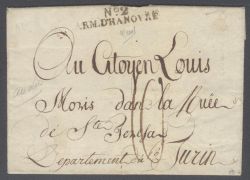 No 2
ARM. D'HANOVRE
Au Citoyen Louis
Moris dans la Ruée
de Ste Teresa
Departement du Po Turin